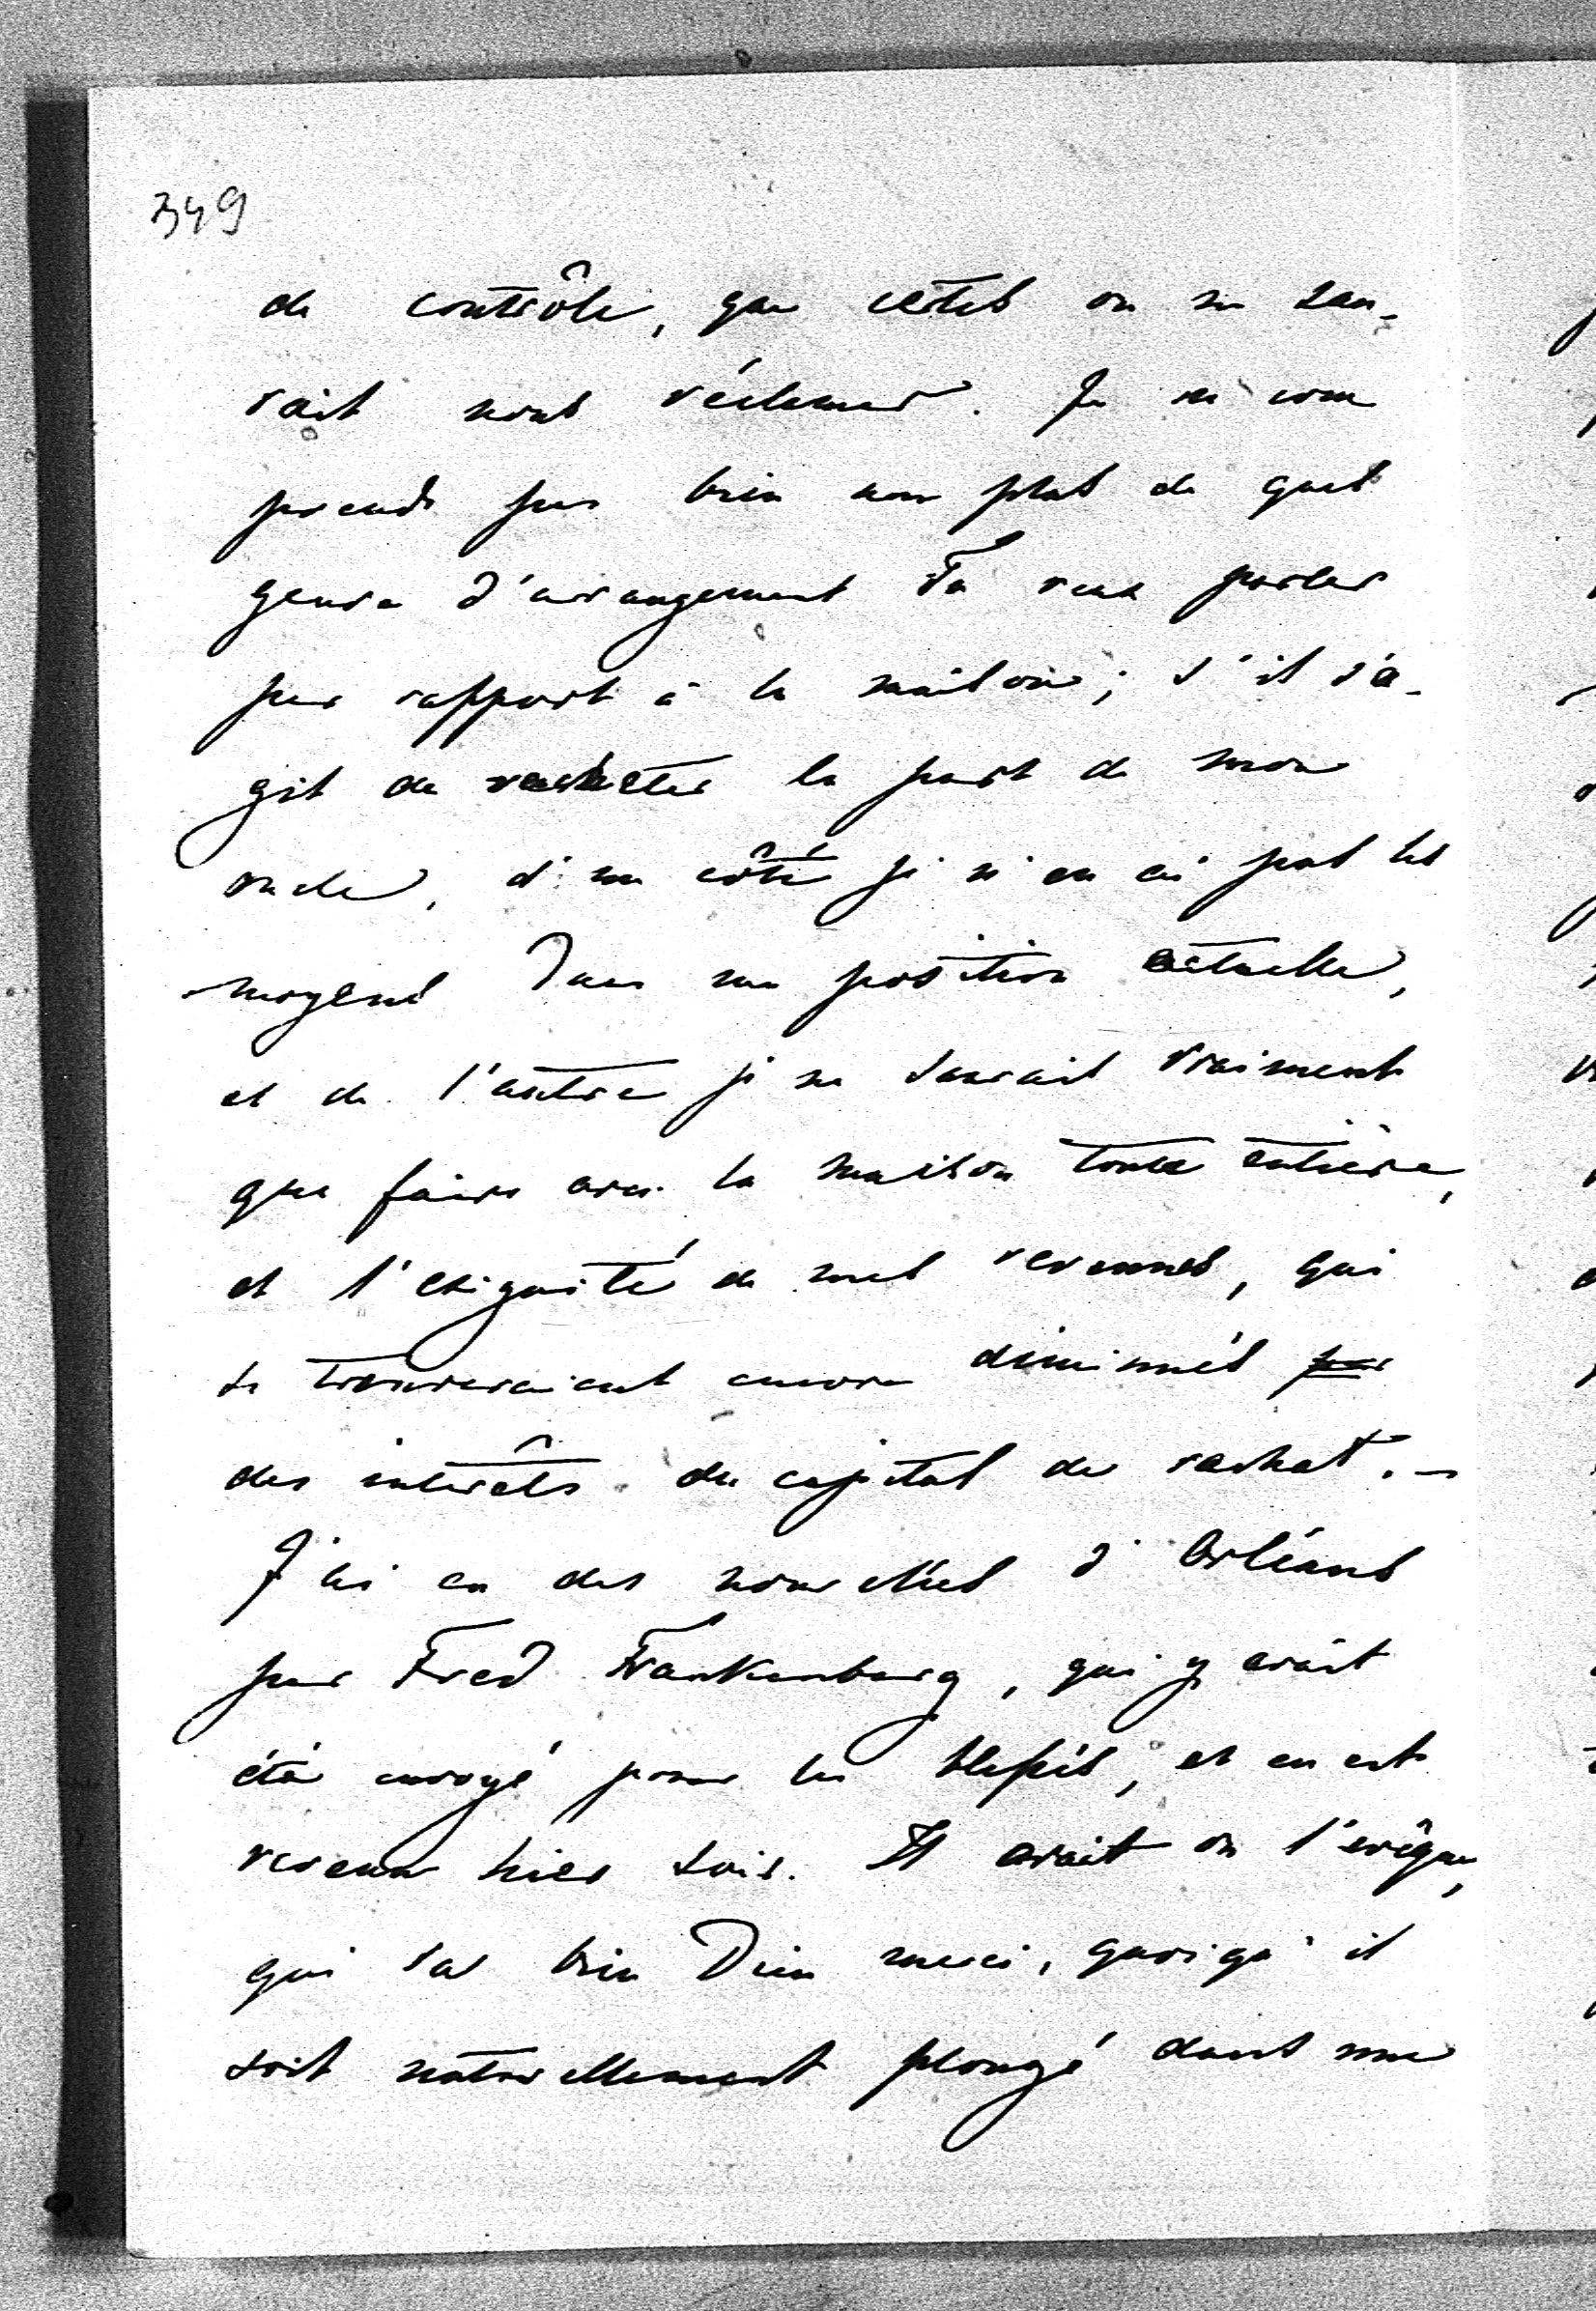 349
de contrôle, que certes on ne sau-
rait nous réclamer. Je ne com
prends pas bien non plus de quel
genre d'arrangement Tu veux parler
par rapport à la maison; s'il s'a-
git de racheter la part de mon
oncle, d'un côté je n'en ai pas les
moyens dans ma position actuelle,
et de l'autre je ne saurais vraiment
que faire avec la maison toute entière,
et l'exiguité de mes revenues, qui
se trouveraient encore diminués par
des intérêts du capital de rachat. –
J'ai eu des nouvelles d'Orléans
par Fred Frankenberg, qui y avait
été envoyé pour les blessés, et en est
revenu hier soir. Il avait vu l'evêque,
qui va bien Dieu merci, quoiqu'il
soit naturellement plongé dans une